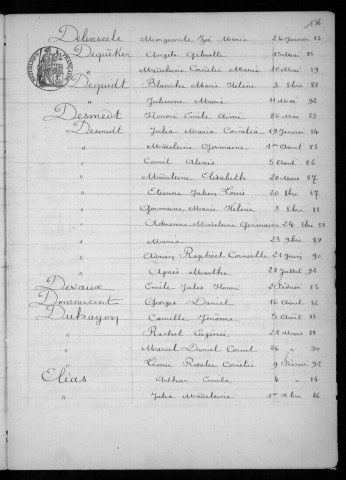 Delenseele Marguerite Zoé Marie 24 Janvier 83
Dequeker Angèle Gabrielle 15 Mai 85
" Madeleine Cornélie Marie 10 Mai 89
Dequidt Blanche Marie Hélène 3 8bre 88
" Julienne Marie 11 Mai 92
Desmedt Honoré Emile Aimé 26 Mai 83
Desmedt Julia Maria Cornélia 19 Janvier 84
" Madeleine Germaine 1er Août 85
" Cornil Alexis 5 Août 86
" Madeleine Elisabeth 20 Mars 87
" Etienne Julien Louis 20 8bre 87
" Germaine Marie Hélène 5 8bre 88
" Adrienne Madeleine Germaine 24 8bre 88
" Maria 23 9bre 89
" Adrien Raphaël Corneille 21 Juin 90
" Agnès Marthe 28 Juillet 92
Devaux Emile Jules Henri 2 Février 85
Dommicent Georges Daniel 16 Août 86
Duhayon Camille Jérôme 5 Août 83
" Rachel Eugénie 21 Mars 88
" Marcel Daniel Cornil 26 " 90
" Léonie Rosalie Cornélie 9 Février 92
Elias Arthur Emile 4 " 84
" Julia Madeleine 1er xbre 86